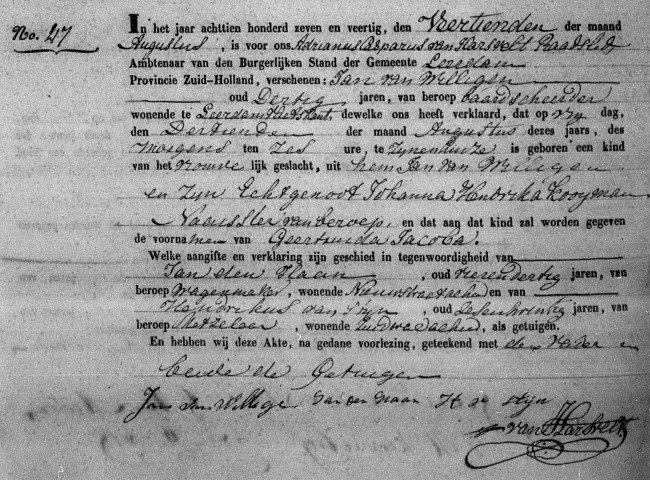 No. 47
In het jaar achttien honderd zeven en veertig, den Veertienden der maand
Augustus, is voor ons Adrianus Casparus van Harsvelt Raadslid
Ambtenaar van den Burgerlijken Stand der Gemeente Leerdam
Provincie Zuid-Holland, verschenen: Jan van Willigen
oud Dertig jaren, van beroep baardscheerder
wonende te Leerdam dewelke ons heeft verklaard, dat op vry dag,
den Dertienden der maand Augustus dezes jaars, des
morgens ten zes ure, te Zynenhuize is geboren een kind
van het vrouwelijk geslacht, uit hem Jan van Willigen
en zyn Echtgenoot Johanna Hendrika Kooyman
Naaister van beroep, en dat aan dat kind zal worden gegeven
de voornamen van Geertruida Jacoba.
Welke aangifte en verklaring zijn geschied in tegenwoordigheid van
Jan den Haan, oud vierendertig jaren, van
beroep Wagenmaker, wonende Nieuwstraat alhier en van
Hendrikus van Stijn, oud zesentwintig jaren, van
beroep Metzelaar, wonende Zuidwal alhier, als getuigen.
En hebben wij deze Akte, na gedane voorlezing, geteekend met de vader en
beide de Getuigen
Jan van Willige Jan den Haan H v Stijn
van Harsvelt